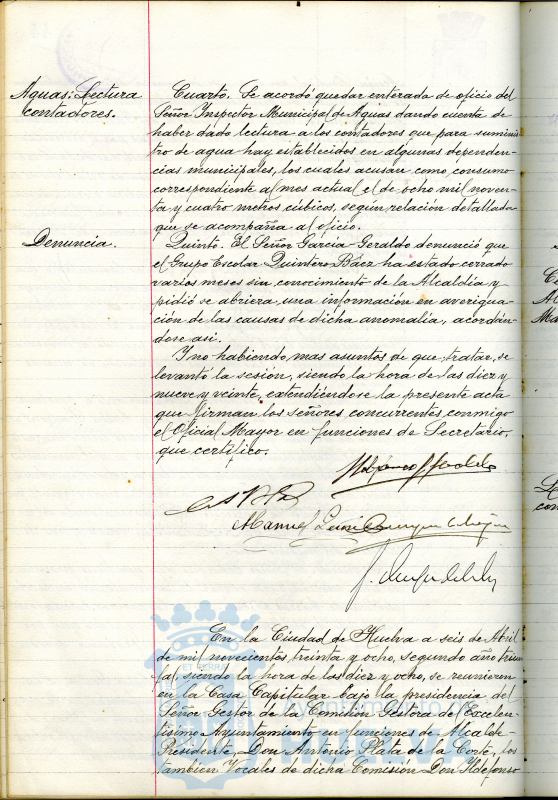 Aguas: Lectura
contadores.
Cuarto. Se acordó quedar enterada de oficio del
Señor Inspector Municipal de Aguas dando cuenta de
haber dado lectura a los contadores que para suminis
tro de agua hay establecidos en algunas dependen-
cias municipales, los cuales acusan como consumo
correspondiente al mes actual el de ocho mil noven-
ta y cuatro metros cúbicos, según relación detallada
que se acompaña al oficio.
Denuncia.
Quinto. El Señor García-Geraldo denunció que
el Grupo Escolar Quintero Báez ha estado cerrado
varios meses sin conocimiento de la Alcaldía y
pidió se abriera una información en averigua-
ción de las causas de dicha anomalía, acordán-
dose así.
Y no habiendo mas asuntos de que tratar, se
levantó la sesión, siendo la hora de las diez y
nueve y veinte, extendiéndose la presente acta
que firman los señores concurrentes conmigo
el Oficial Mayor en funciones de Secretario,
que certifico.
Manuel
En la Ciudad de Huelva a seis de Abril
de mil novecientos treinta y ocho, segundo año triun
fal, siendo la hora de las diez y ocho, se reunieron
en la Casa Capitular bajo la presidencia del
Señor Gestor de la Comisión Gestora del Excelen-
tísimo Ayuntamiento en funciones de Alcalde-
Presidente, Don Antonio Plata de la Corte, los
tambien Vocales de dicha Comisión Don Ildefonso